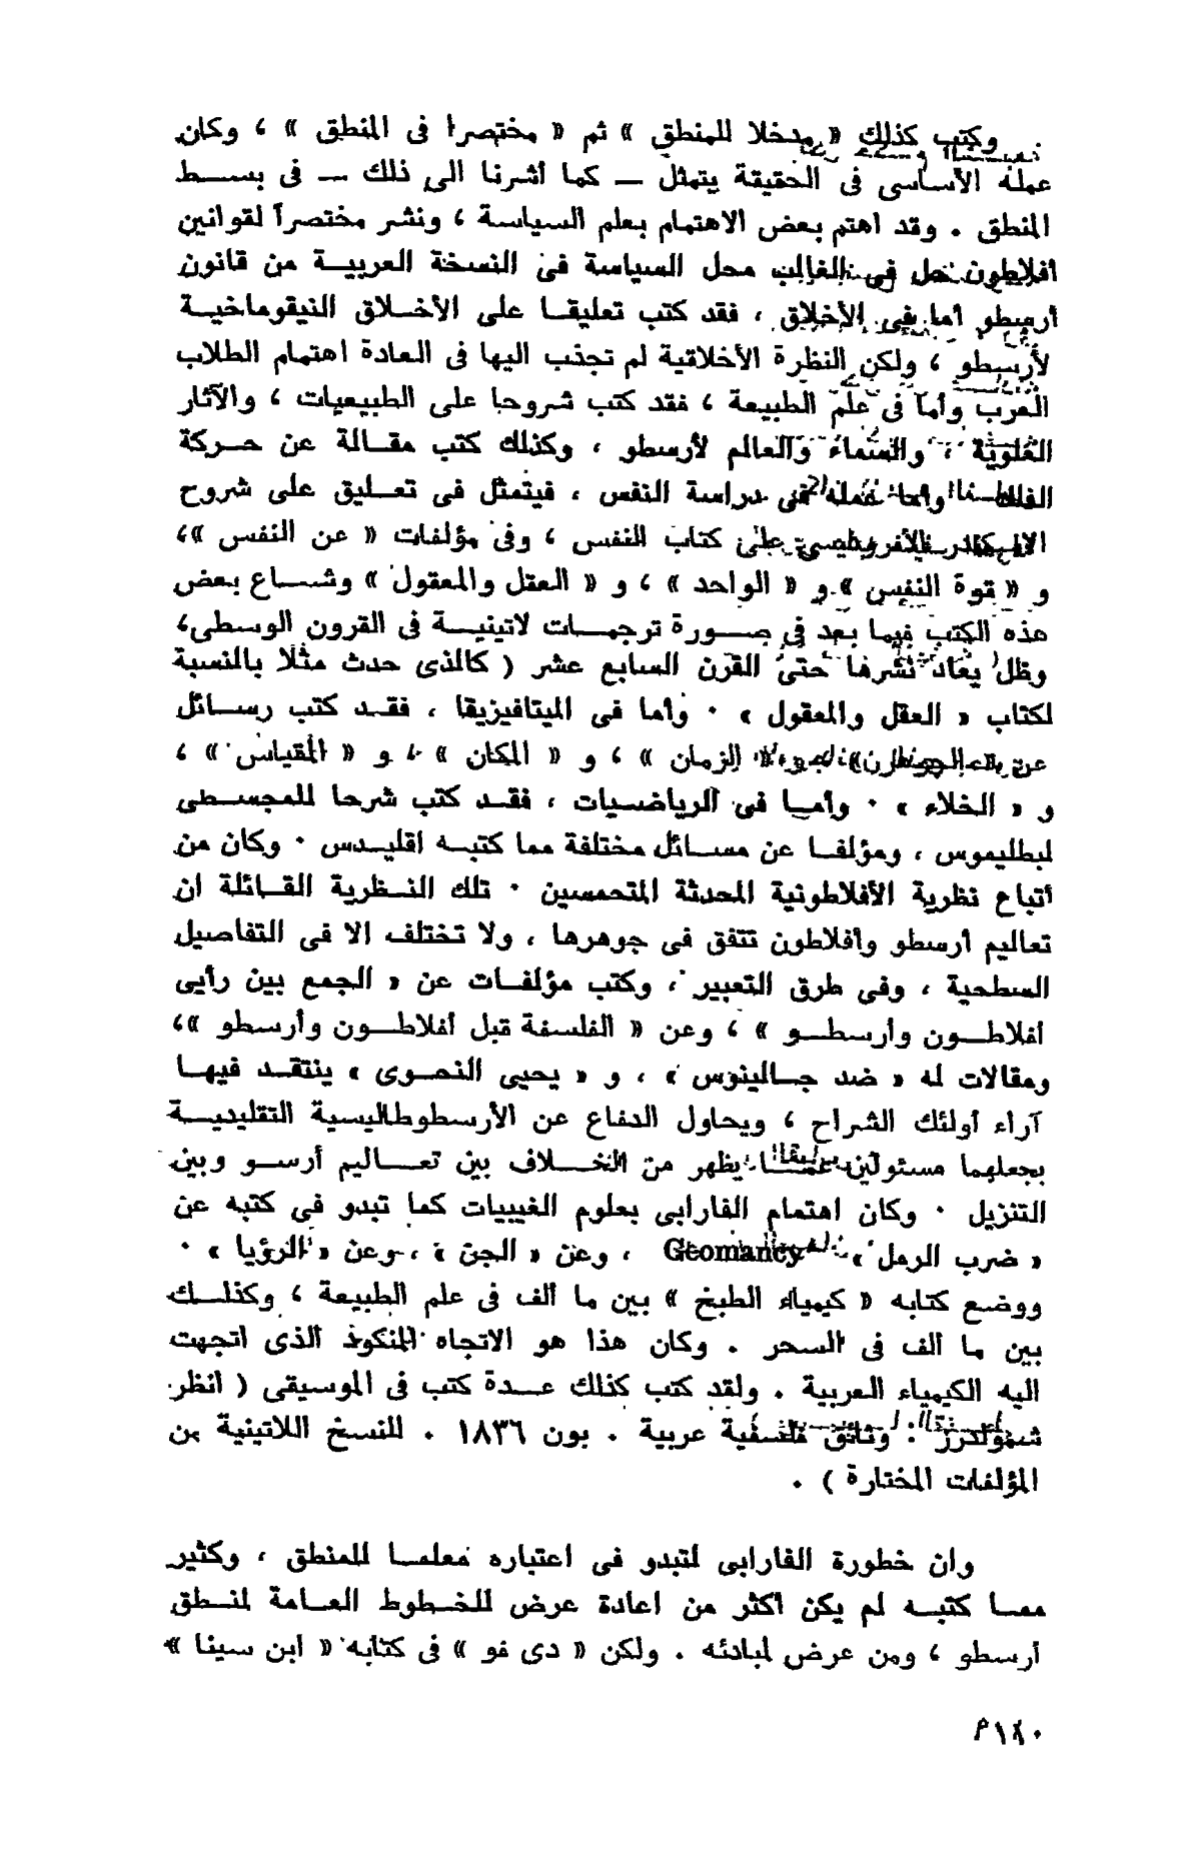 وكتب كذلك « مدخلا للمنطق » ثم « مختصرا فى المنطق » ، وكان
عمله الأساسى فى الحقيقة يتمثل — كما أشرنا الى ذلك — فى بسط
المنطق . وقد اهتم بعض الاهتمام بعلم السياسة ، ونشر مختصراً لقوانين
أفلاطون حل فى الغالب محل السياسة فى النسخة العربية من قانون
أرسطو أما فى الأخلاق ، فقد كتب تعليقا على الأخلاق النيقوماخية
لأرسطو ، ولكن النظرة الأخلاقية لم تجذب اليها فى العادة اهتمام الطلاب
العرب وأما فى علم الطبيعة ، فقد كتب شروحا على الطبيعيات ، والآثار
العلوية ، والسماء والعالم لأرسطو ، وكذلك كتب مقالة عن حركة
الفلك وأما عمله فى دراسة النفس ، فيتمثل فى تعليق على شروح
الاسكندر الأفروديسى على كتاب النفس ، وفى مؤلفات « عن النفس »،
و « قوة النفس » و « الواحد » ، و « العقل والمعقول » وشاع بعض
هذه الكتب فيما بعد فى صورة ترجمات لاتينية فى القرون الوسطى،
وظل يعاد نشرها حتى القرن السابع عشر ( كالذى حدث مثلا بالنسبة
لكتاب « العقل والمعقول » . وأما فى الميتافيزيقا ، فقد كتب رسائل
عن الزمان » ، و « المكان » ، و « المقياس » ،
و « الخلاء » . وأما فى الرياضيات ، فقد كتب شرحا للمجسطى
لبطليموس ، ومؤلفا عن مسائل مختلفة مما كتبه اقليدس . وكان من
أتباع نظرية الأفلاطونية المحدثة المتحمسين . تلك النظرية القائلة ان
تعاليم أرسطو وأفلاطون تتفق فى جوهرها ، ولا تختلف الا فى التفاصيل
السطحية ، وفى طرق التعبير ، وكتب مؤلفات عن « الجمع بين رأيى
أفلاطون وأرسطو » ، وعن « الفلسفة قبل أفلاطون وأرسطو »،
ومقالات له « ضد جالينوس » ، و « يحيى النحوى » ينتقد فيها
آراء أولئك الشراح ، ويحاول الدفاع عن الأرسطوطاليسية التقليدية
بجعلهما مسئولين عما يظهر من الخلاف بين تعاليم أرسو وبين
التنزيل . وكان اهتمام الفارابى بعلوم الغيبيات كما تبدو فى كتبه عن
« ضرب الرمل » Geomancy ، وعن « الجن » ، وعن « الرؤيا » .
ووضع كتابه « كيمياء الطبخ » بين ما ألف فى علم الطبيعة ، وكذلك
بين ما ألف فى السحر . وكان هذا هو الاتجاه المنكود الذى اتجهت
اليه الكيمياء العربية . ولقد كتب كذلك عدة كتب فى الموسيقى ( انظر
شمولدرز . وثائق فلسفية عربية . بون ١٨٣٦ . للنسخ اللاتينية من
المؤلفات المختارة ) .
وان خطورة الفارابى لتبدو فى اعتباره معلما للمنطق ، وكثير
مما كتبه لم يكن أكثر من اعادة عرض للخطوط العامة لمنطق
أرسطو ، ومن عرض لمبادئه . ولكن « دى فو » فى كتابه « ابن سينا »